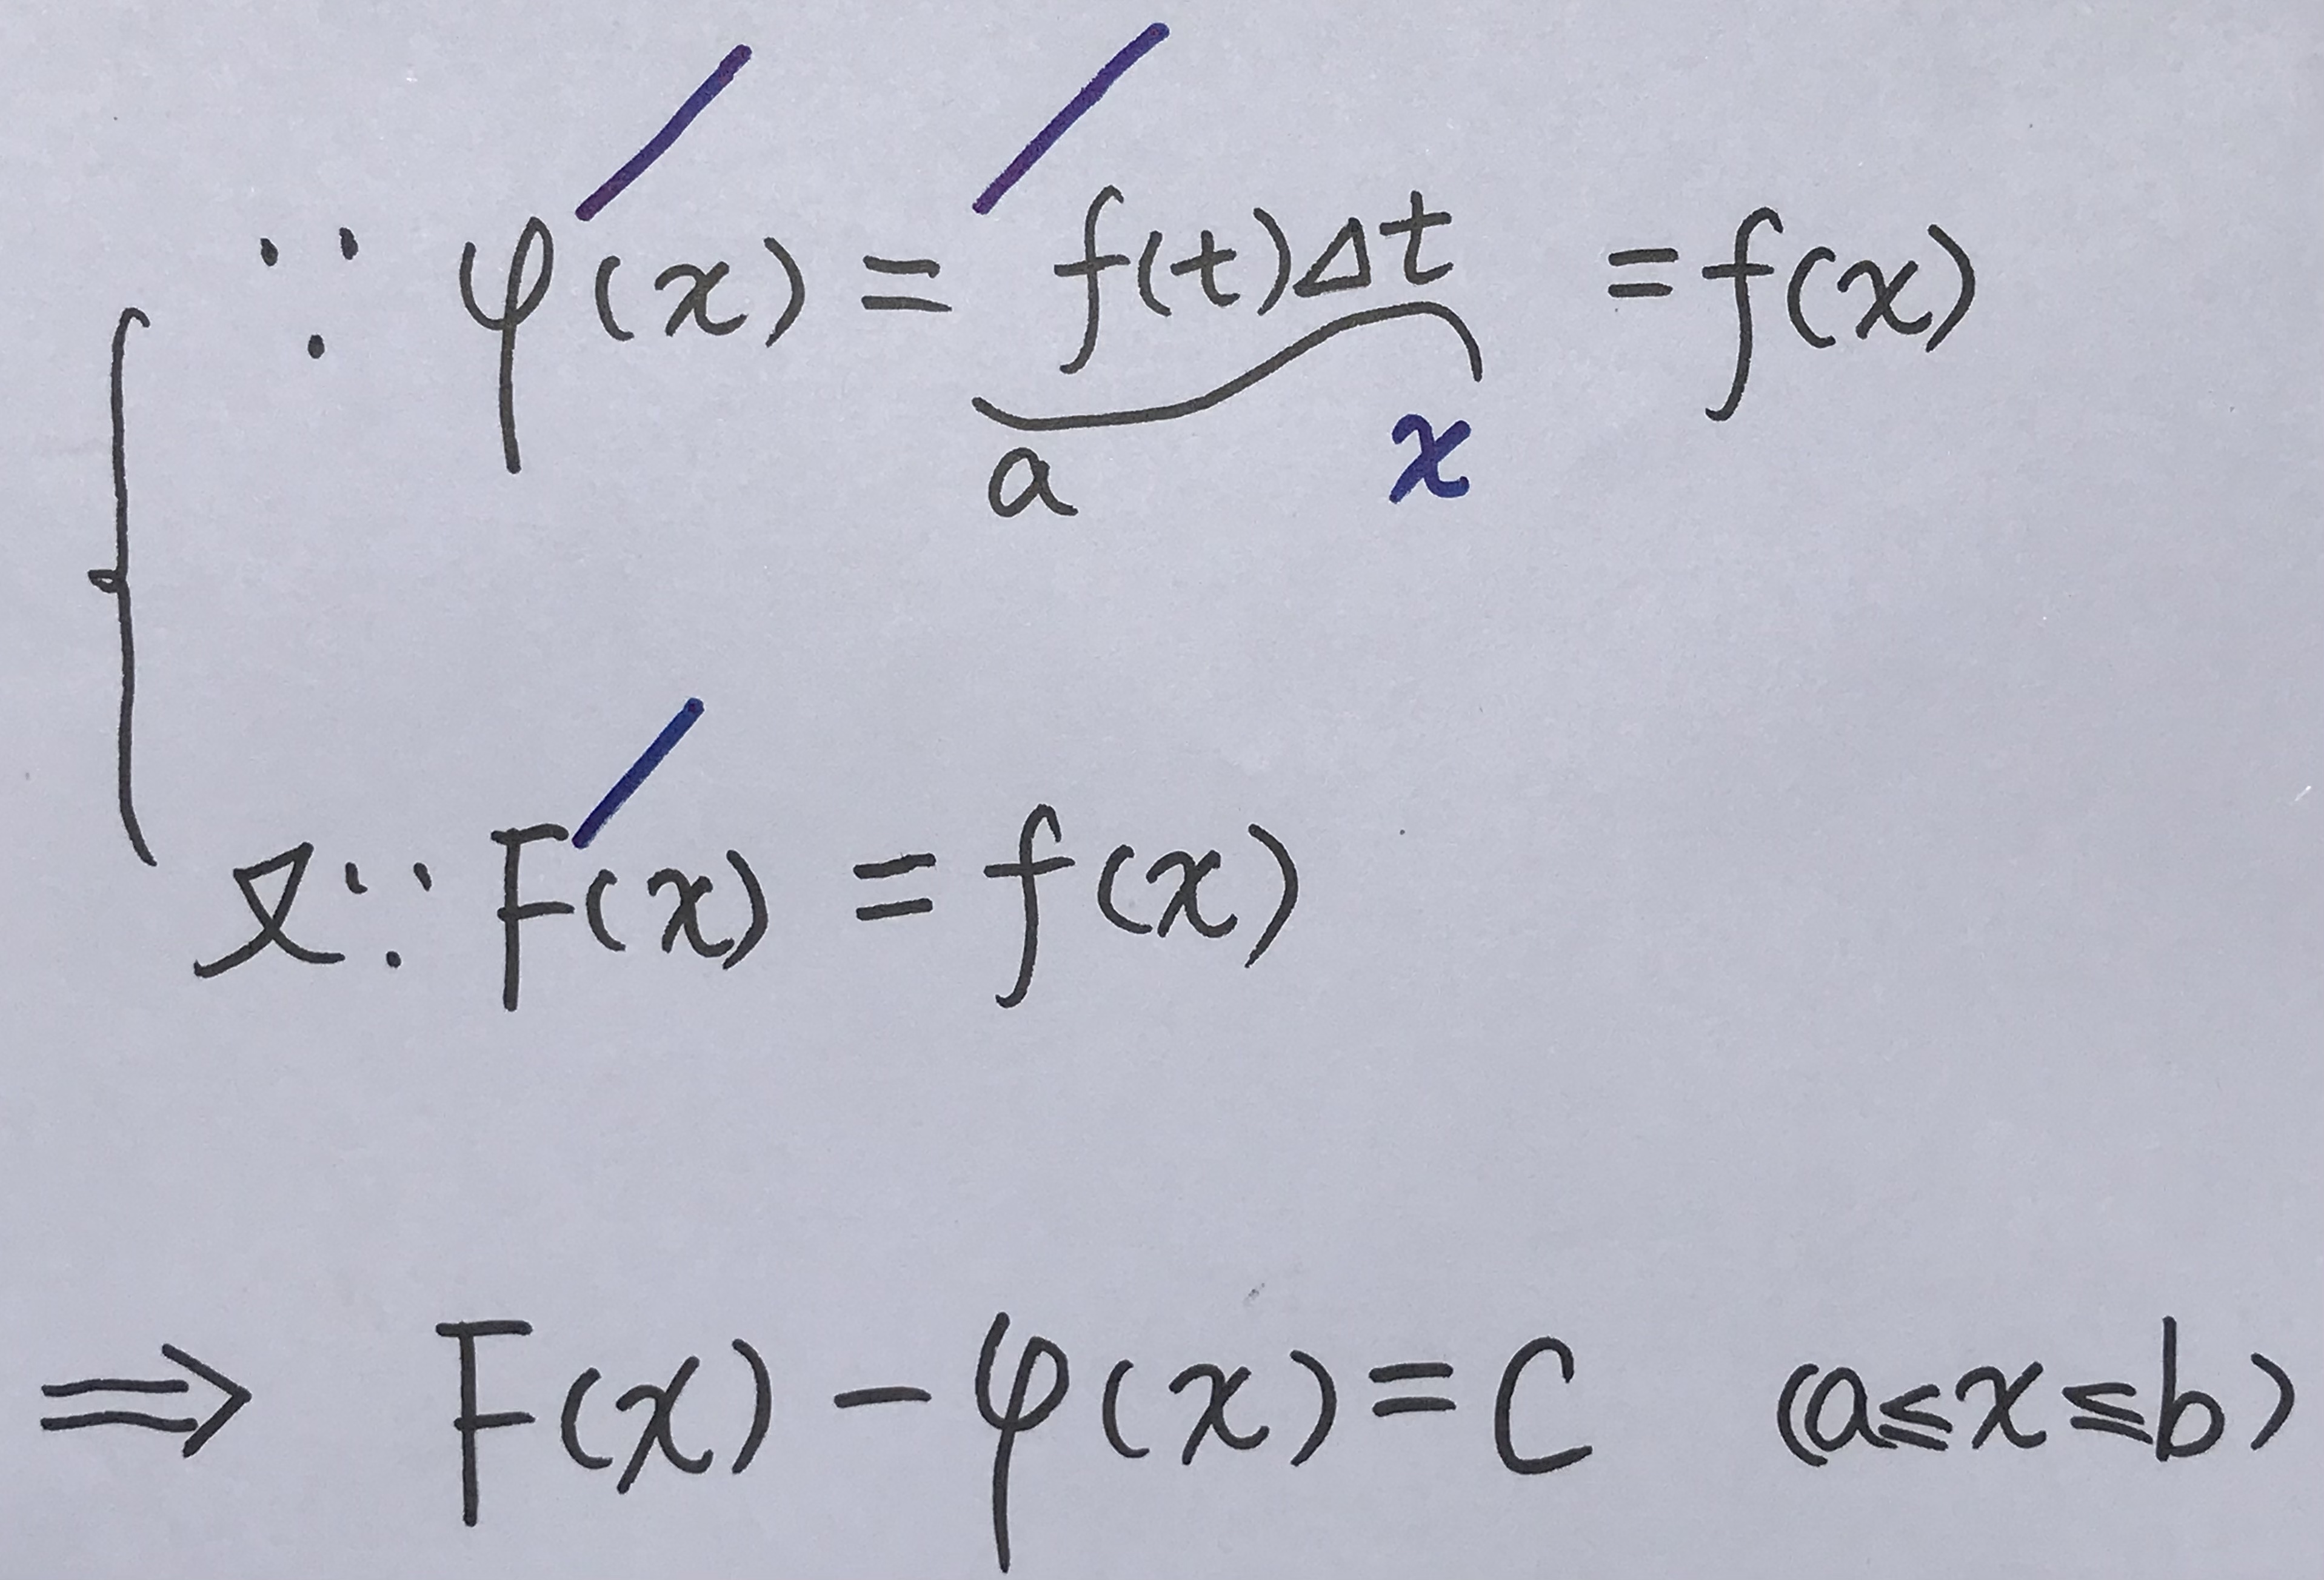 ∵ φ′(x) = ′f(t)Δt = f(x)
a x
又∵ F′(x) = f(x)
⇒ F(x) − φ(x) = C (a≤x≤b)